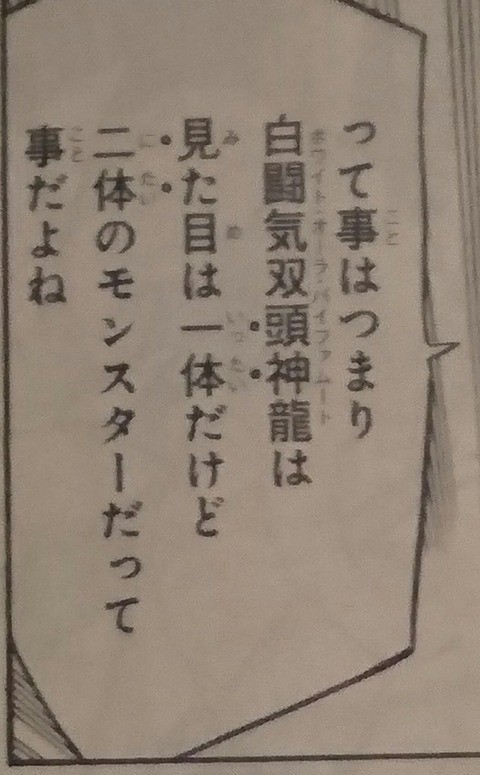 って事はつまり
白闘気双頭神龍は
見た目は一体だけど
二体のモンスターだって
事だよね